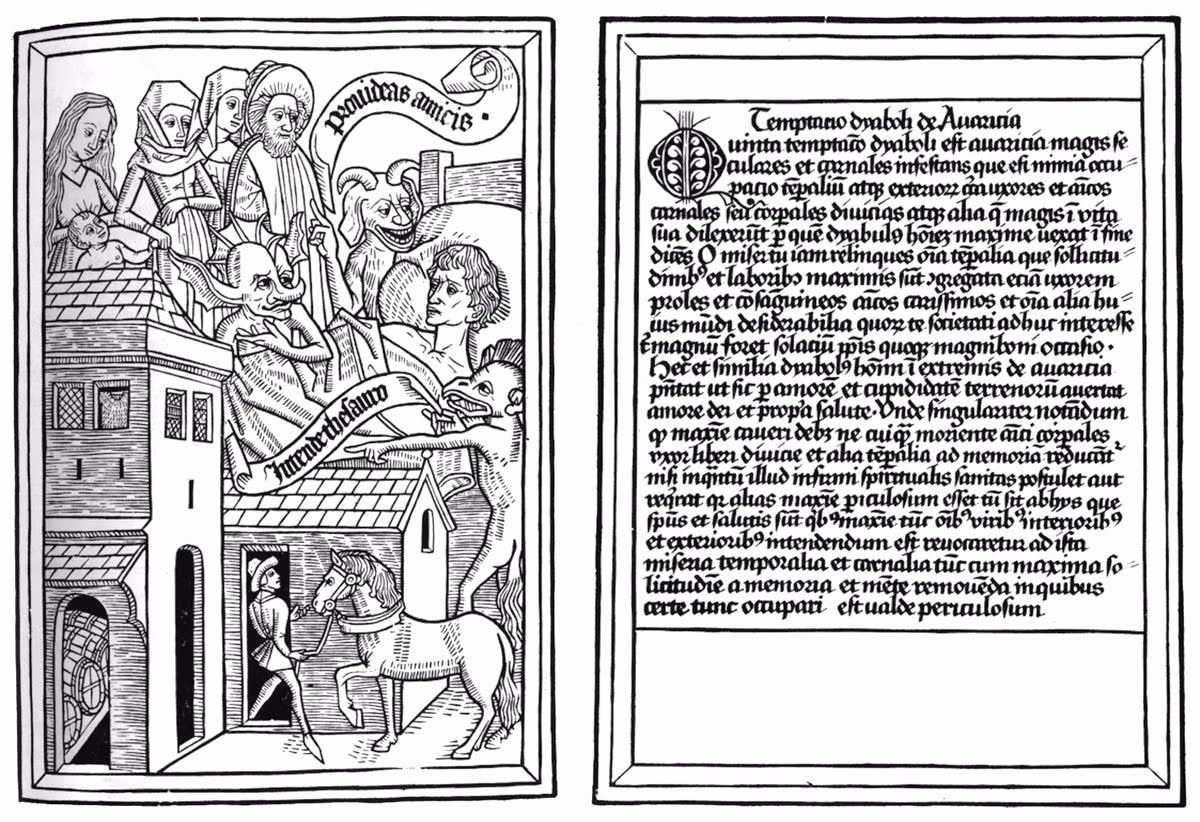 Provideas amicis.
Intende thesauro
Temptacio dyaboli de Avaricia
Quinta temptacō dyaboli est avaricia magis se⸗
culares et carnales infestans que est nimia occu⸗
pacio tēp̄aliū atqȝ exteriorꝝ cͥca uxores et amͥcos
carnales seu corpales divicias atqȝ alia q̄ magis ī vita
sua dilexerūt p̱ que dyabulꝯ hōīeȝ maxime vexat ī fine
dicēs O miser tu iam relinques oīa tēp̄alia que sollicitu⸗
dinibꝯ et laboribꝯ maximis sūt ꝯgregata eciā uxorem
proles et cōsāguineos amͥcos carissimos et oīa alia hu⸗
ius mūdi desiderabilia quorꝝ te societati adhuc interesse
t̄ magnū foret solaciū ip̄is quoqȝ magni boni occasio·
Hec et similia dyabolꝯ hōīnī ī extremis de avaricia
p̄ntat ut sic p̱ amorē et cupiditatē terrenorū avertat
amore dei et prop̱a salute· Vnde singulariter notādum
qͩ maxīe caveri debȝ ne cuiqͣ moriente amͥci corpales
vxor liberi divicie et alia tēp̄alia ad memoriā reducātͬ
nisi inqͣntū illud infirmi spiritualis sanitas postulet aut
reqͥrat qr alias maxīe p̱iculosum esset cū sic ab hys que
sp̄us et salutis sūt qͥbꝯ maxīe tūc oībꝯ viribꝯ interioribꝯ
et exterioribꝯ intendendum est revocaretur ad ista
miseria temporalia et carnalia tūc cum maxima so⸗
licitudīe a memoria et mēte removēda in quibus
certe tunc occupari est valde periculosum